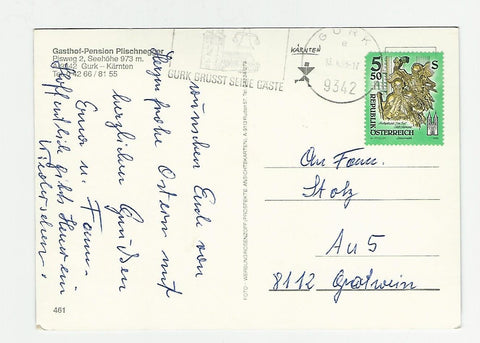 Gasthof-Pension Plischnegger
Pisweg 2, Seehöhe 973 m.
9342 Gurk – Kärnten
Tel. 42 66 / 81 55
GURK GRÜSST SEINE GÄSTE
KÄRNTEN
GURK
9342
5 50 S
REPUBLIK
ÖSTERREICH
wünschen Euch von
Herzen frohe Ostern mit
herzlichen Grüßen
Erna u. Fam.
Hoffentlich gibts Heuer ein
Wiedersehen!
An Fam.
Stolz
Au 5
8112 Gratwein
461